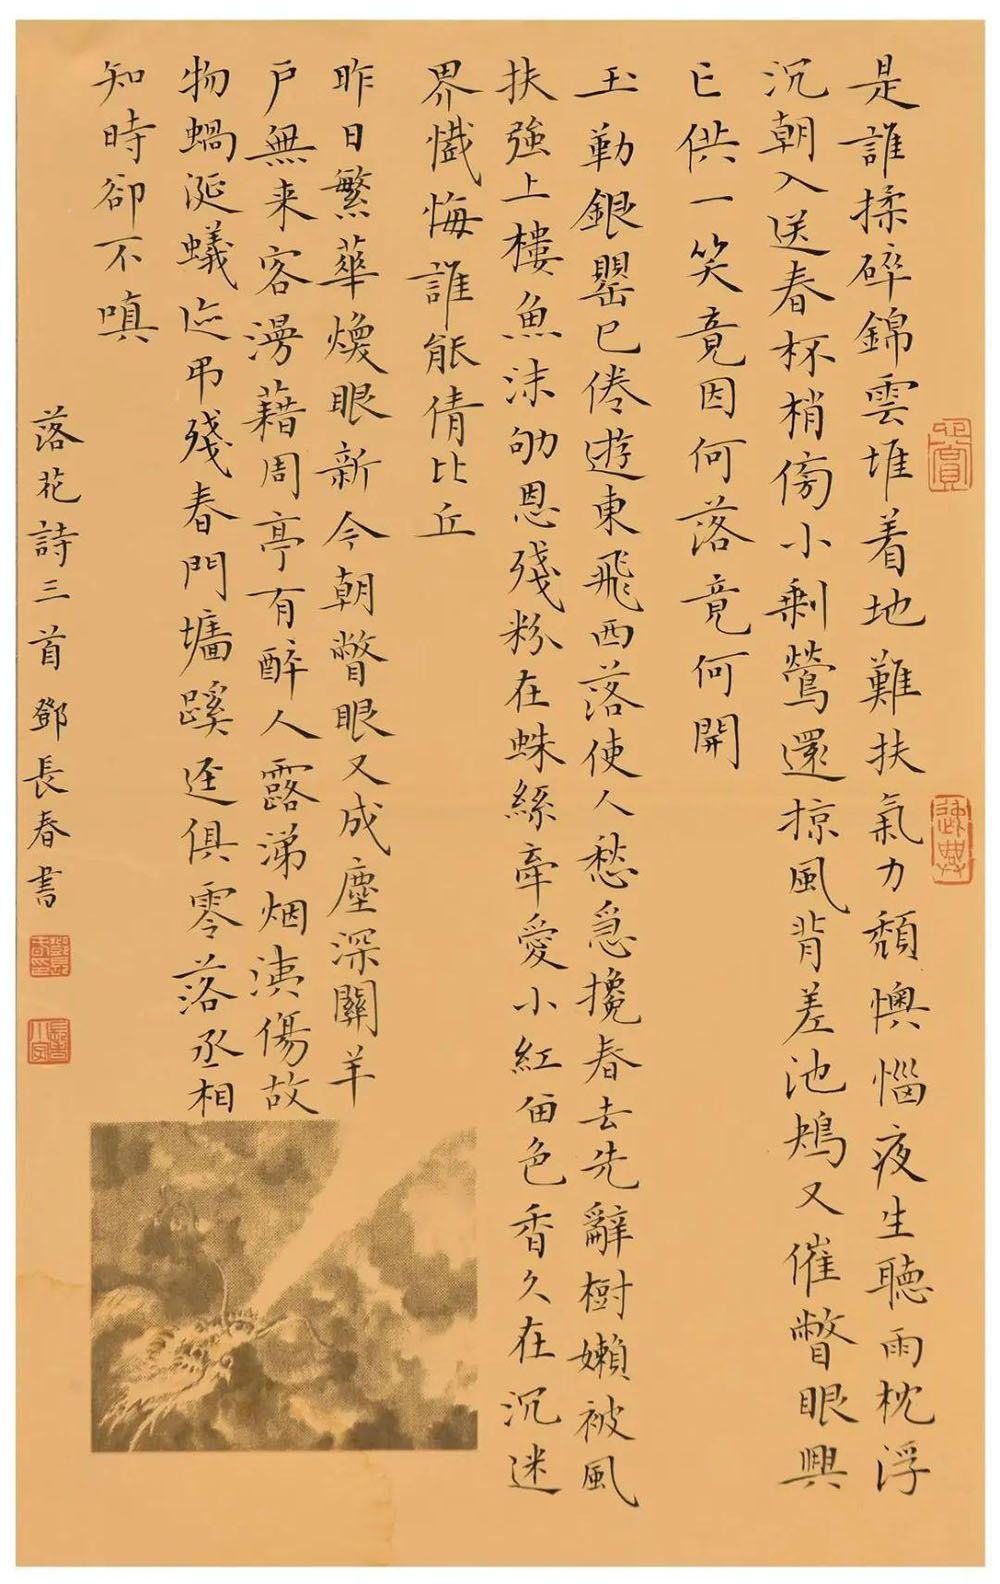 是誰揉碎錦雲堆着地難扶氣力頹懊惱夜生聽雨枕浮
沉朝入送春杯梢傍小剩鶯還掠風背差池鳩又催瞥眼興
亡供一笑竟因何落竟何開
玉勒銀罌已倦遊東飛西落使人愁急攙春去先辭樹嬾被風
扶強上樓魚沫劬恩殘粉在蛛絲牽愛小紅留色香久在沉迷
界懺悔誰能倩比丘
昨日繁華煥眼新今朝瞥眼又成塵深關羊
戶無来客漫藉周亭有醉人露涕烟洟傷故
物蝸涎蟻迹弔殘春門墻蹊迳俱零落丞相
知時卻不嗔
落花詩三首鄧長春書